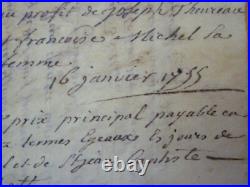 au profit de Joseph Thureau
et francoise Michel sa
femme
16 janvier 1755
prix principal payable en
termes Egeaux Es jours de
et de St jean Baptiste